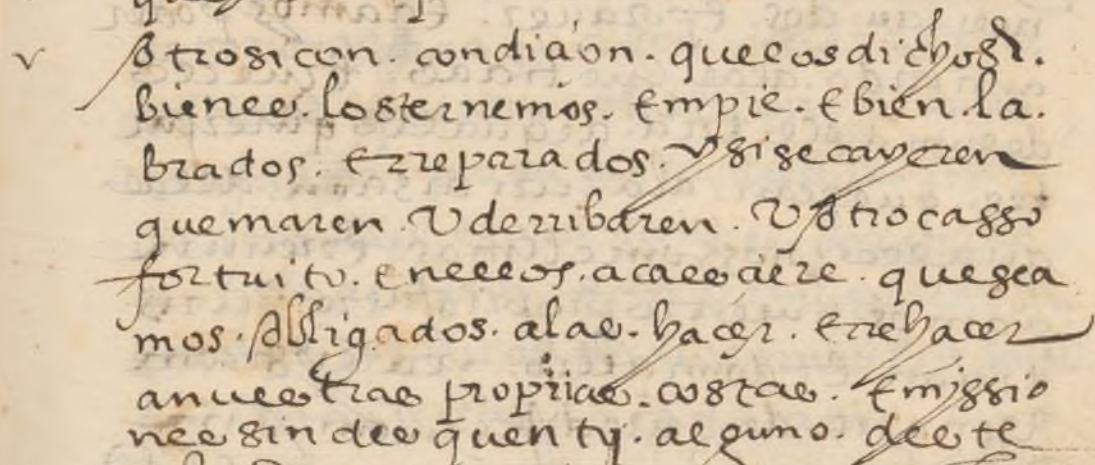 v otrosi con condicion quelos dichos
bienes los ternemos en pie e bien la
brados e rreparados y si se cayeren
quemaren v derribaren v otro casso
fortuito en ellos acaesciere que sea
mos obligados a las hacer e rrehacer
a nuestras proprias costas e missio
nes sin desquento alguno deste